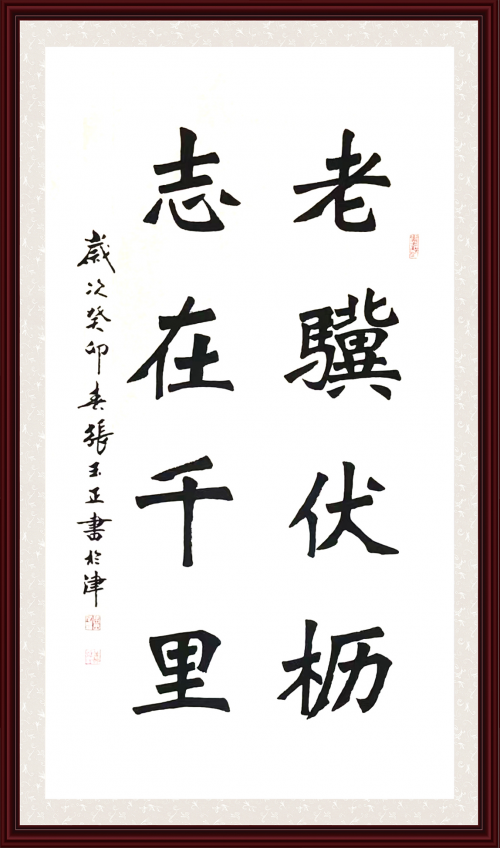 老驥伏枥
志在千里
歲次癸卯春張玉正書於津